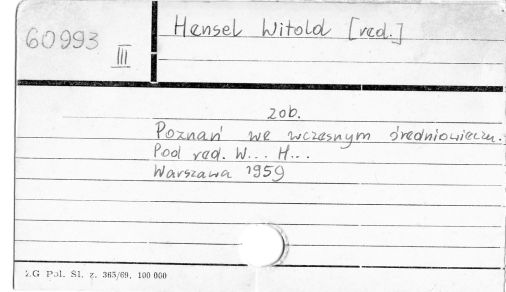 60993
III
Hensel Witold [red.]
zob.
Poznań we wczesnym średniowieczu.
Pod red. W... H...
Warszawa 1959
Z.G Pol. Sl. z. 365/69. 100 000